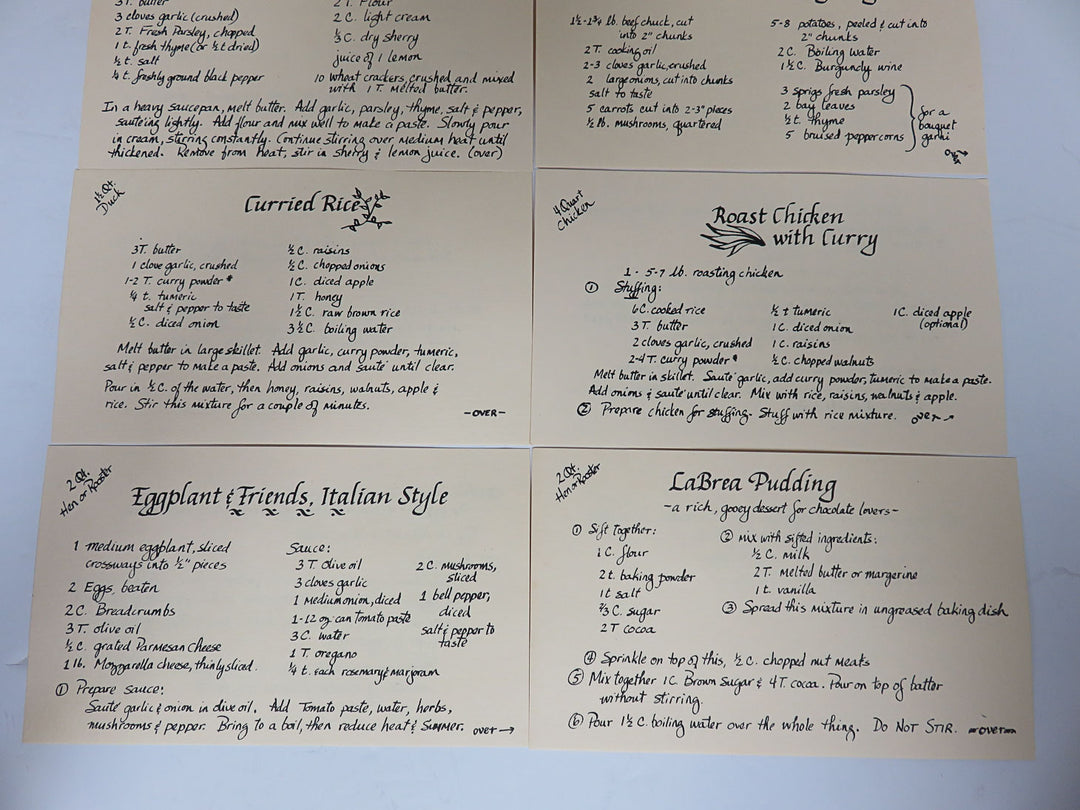 3T. butter
3 cloves garlic (crushed)
2T. Fresh Parsley, chopped
1 t. fresh thyme (or ½ t dried)
½ t. salt
¼ t. freshly ground black pepper
2 T. Flour
2 C. light cream
⅓ C. dry sherry
juice of 1 lemon
10 wheat crackers, crushed and mixed
with 1T. melted butter.
In a heavy saucepan, melt butter. Add garlic, parsley, thyme, salt & pepper,
sauteing lightly. Add flour and mix well to make a paste. Slowly pour
in cream, stirring constantly. Continue stirring over medium heat until
thickened. Remove from heat, stir in sherry & lemon juice. (over)
1½-1¾ lb. beef chuck, cut
into 2" chunks
2T. cooking oil
2-3 cloves garlic, crushed
2 large onions, cut into chunks
salt to taste
5 carrots cut into 2-3" pieces
½ lb. mushrooms, quartered
5-8 potatoes, peeled & cut into
2" chunks
2 C. Boiling water
1½ C. Burgundy wine
3 sprigs fresh parsley
2 bay leaves
½ t. thyme
5 bruised peppercorns
for a
bouquet
garni
over →
1½ Qt.
Duck
Curried Rice
3T. butter
1 clove garlic, crushed
1-2 T. curry powder *
¼ t. tumeric
salt & pepper to taste
½ C. diced onion
½ C. raisins
½ C. chopped onions
1C. diced apple
1T. honey
1½ C. raw brown rice
3½ C. boiling water
Melt butter in large skillet. Add garlic, curry powder, tumeric,
salt & pepper to make a paste. Add onions and sauté until clear.
Pour in ½ C. of the water, then honey, raisins, walnuts, apple &
rice. Stir this mixture for a couple of minutes.
-OVER-
4 Quart
Chicken
Roast Chicken
with Curry
1 - 5-7 lb. roasting chicken
① Stuffing:
6C. cooked rice
3T. butter
2 cloves garlic, crushed
2-4 T. curry powder *
½ t tumeric
1C. diced onion
1 C. raisins
½ C. chopped walnuts
1C. diced apple
(optional)
Melt butter in skillet. Sauté garlic, add curry powder, tumeric to make a paste.
Add onions & sauté until clear. Mix with rice, raisins, walnuts & apple.
② Prepare chicken for stuffing. Stuff with rice mixture. over →
2 Qt.
Hen or Rooster
Eggplant & Friends, Italian Style
1 medium eggplant, sliced
crossways into ½" pieces
2 Eggs, beaten
2 C. Breadcrumbs
3 T. olive oil
½ C. grated Parmesan Cheese
1 lb. Mozzarella cheese, thinly sliced.
Sauce:
3 T. olive oil
3 cloves garlic
1 Medium onion, diced
1-12 oz. can Tomato paste
3 C. water
1 T. oregano
¼ t. each rosemary & marjoram
2 C. mushrooms,
sliced
1 bell pepper,
diced
salt & pepper to
taste
① Prepare Sauce:
Sauté garlic & onion in olive oil. Add Tomato paste, water, herbs,
mushrooms & pepper. Bring to a boil, then reduce heat & Summer. over →
2 Qt.
Hen or Rooster
LaBrea Pudding
~a rich, gooey dessert for chocolate lovers~
① Sift Together:
1 C. flour
2t. baking powder
1t salt
⅔ C. sugar
2T cocoa
② Mix with sifted ingredients:
½ C. milk
2T. Melted butter or margerine
1t. vanilla
③ Spread this mixture in ungreased baking dish
④ Sprinkle on top of this, ½ C. chopped nut meats
⑤ Mix together 1C. Brown Sugar & 4T. cocoa. Pour on top of batter
without stirring.
⑥ Pour 1½ C. boiling water over the whole thing. DO NOT STIR. -over-